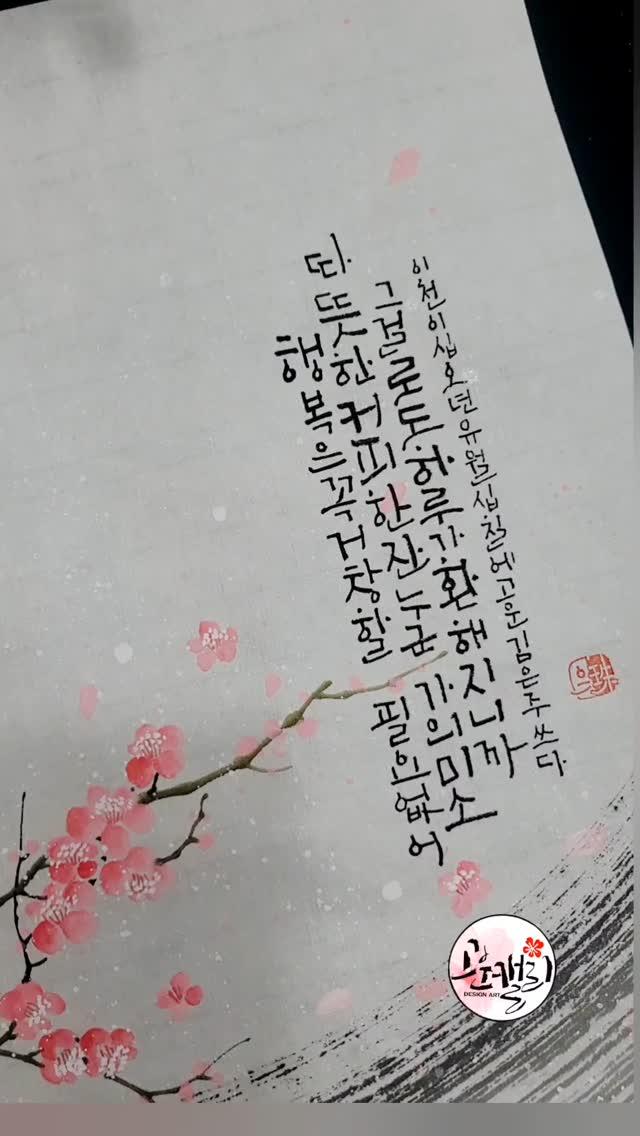 행복은 꼭 거창할 필요 없어
따뜻한 커피 한 잔 누군가의 미소
그걸로도 하루가 환해지니까
이천이십오년 유월 십칠에 고운 김은주 쓰다
고운캘리
DESIGN ART